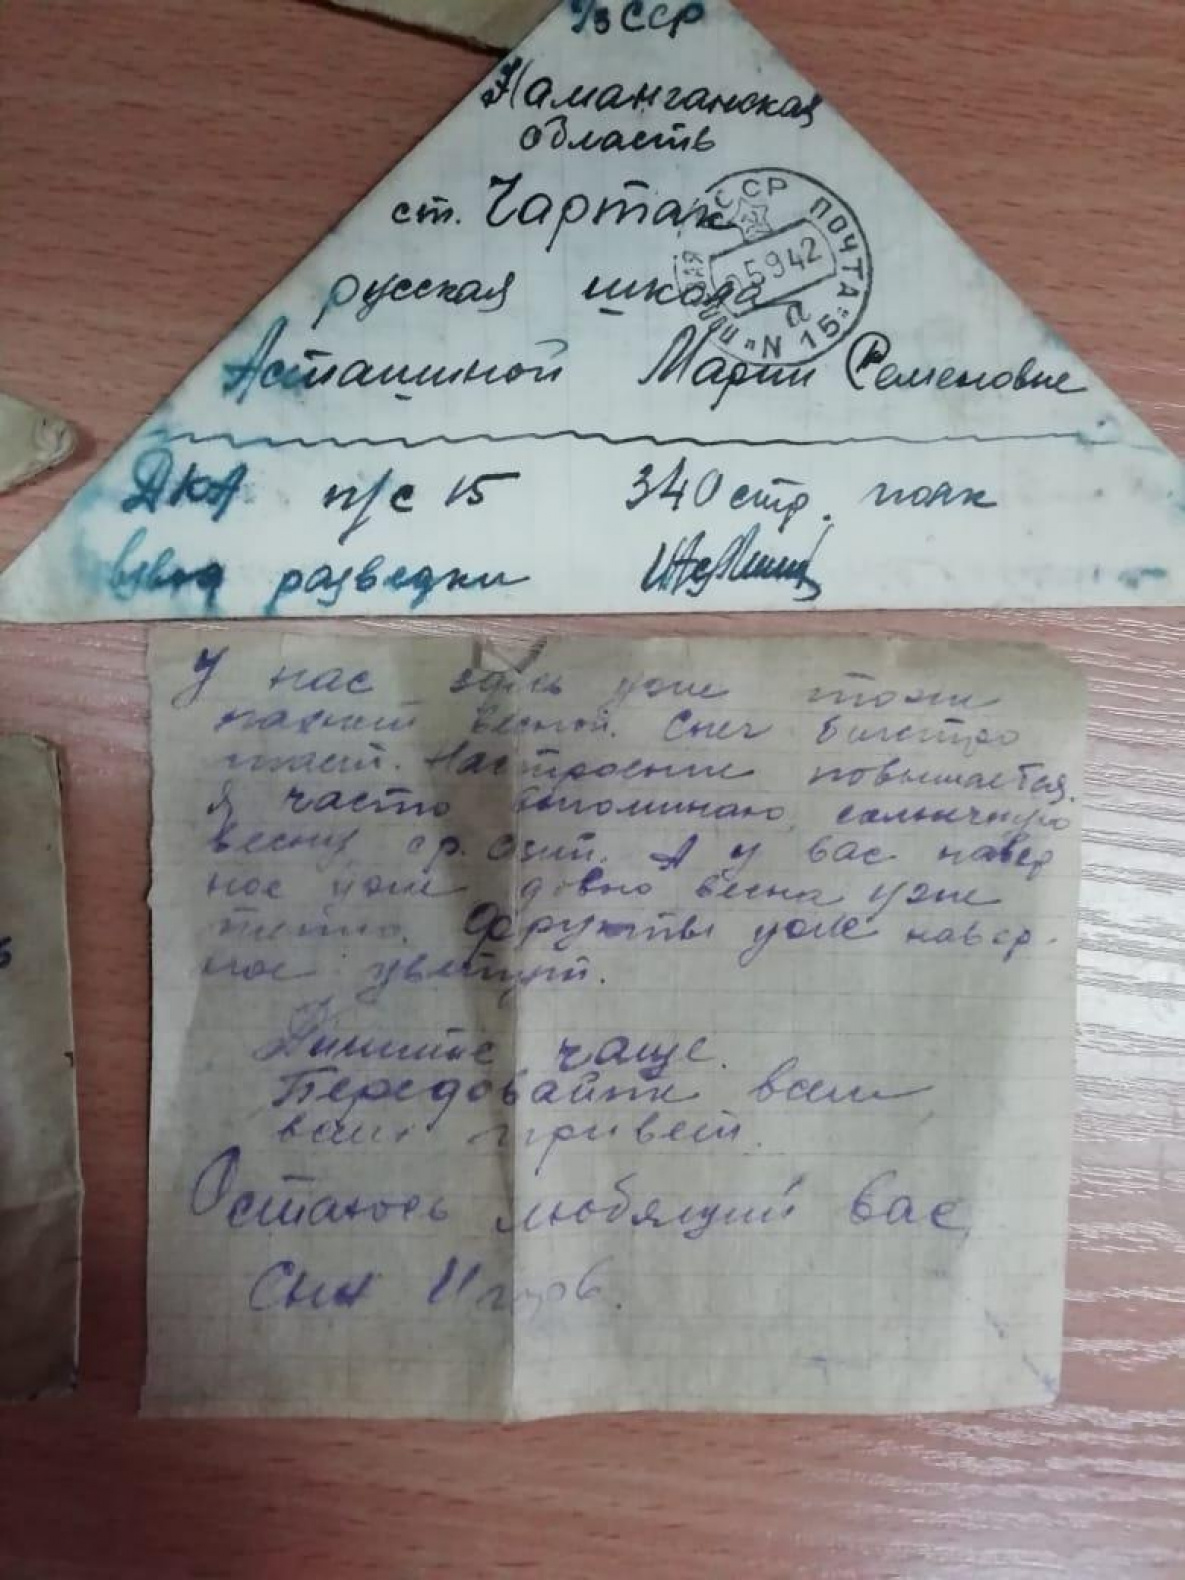 УзССР
Наманганская
область
ст. Чартак
русская школа
Асташиной Марии Семеновне
ССР ПОЧТА
5 9 42
а
№ 15
ДКА п/с 15 340 стр. полк
взвод разведки
У нас здесь уже тоже
пахнет весной. Снег быстро
тает. Настроение повышается.
Я часто вспоминаю солнечную
весну ср. Азии. А у вас навер
ное уже давно весна уже
тепло. Фрукты уже навер-
ное цветут.
Пишите чаще.
Передовайте всем
всем привет.
Остаюсь любящий вас
Сын Игорь.